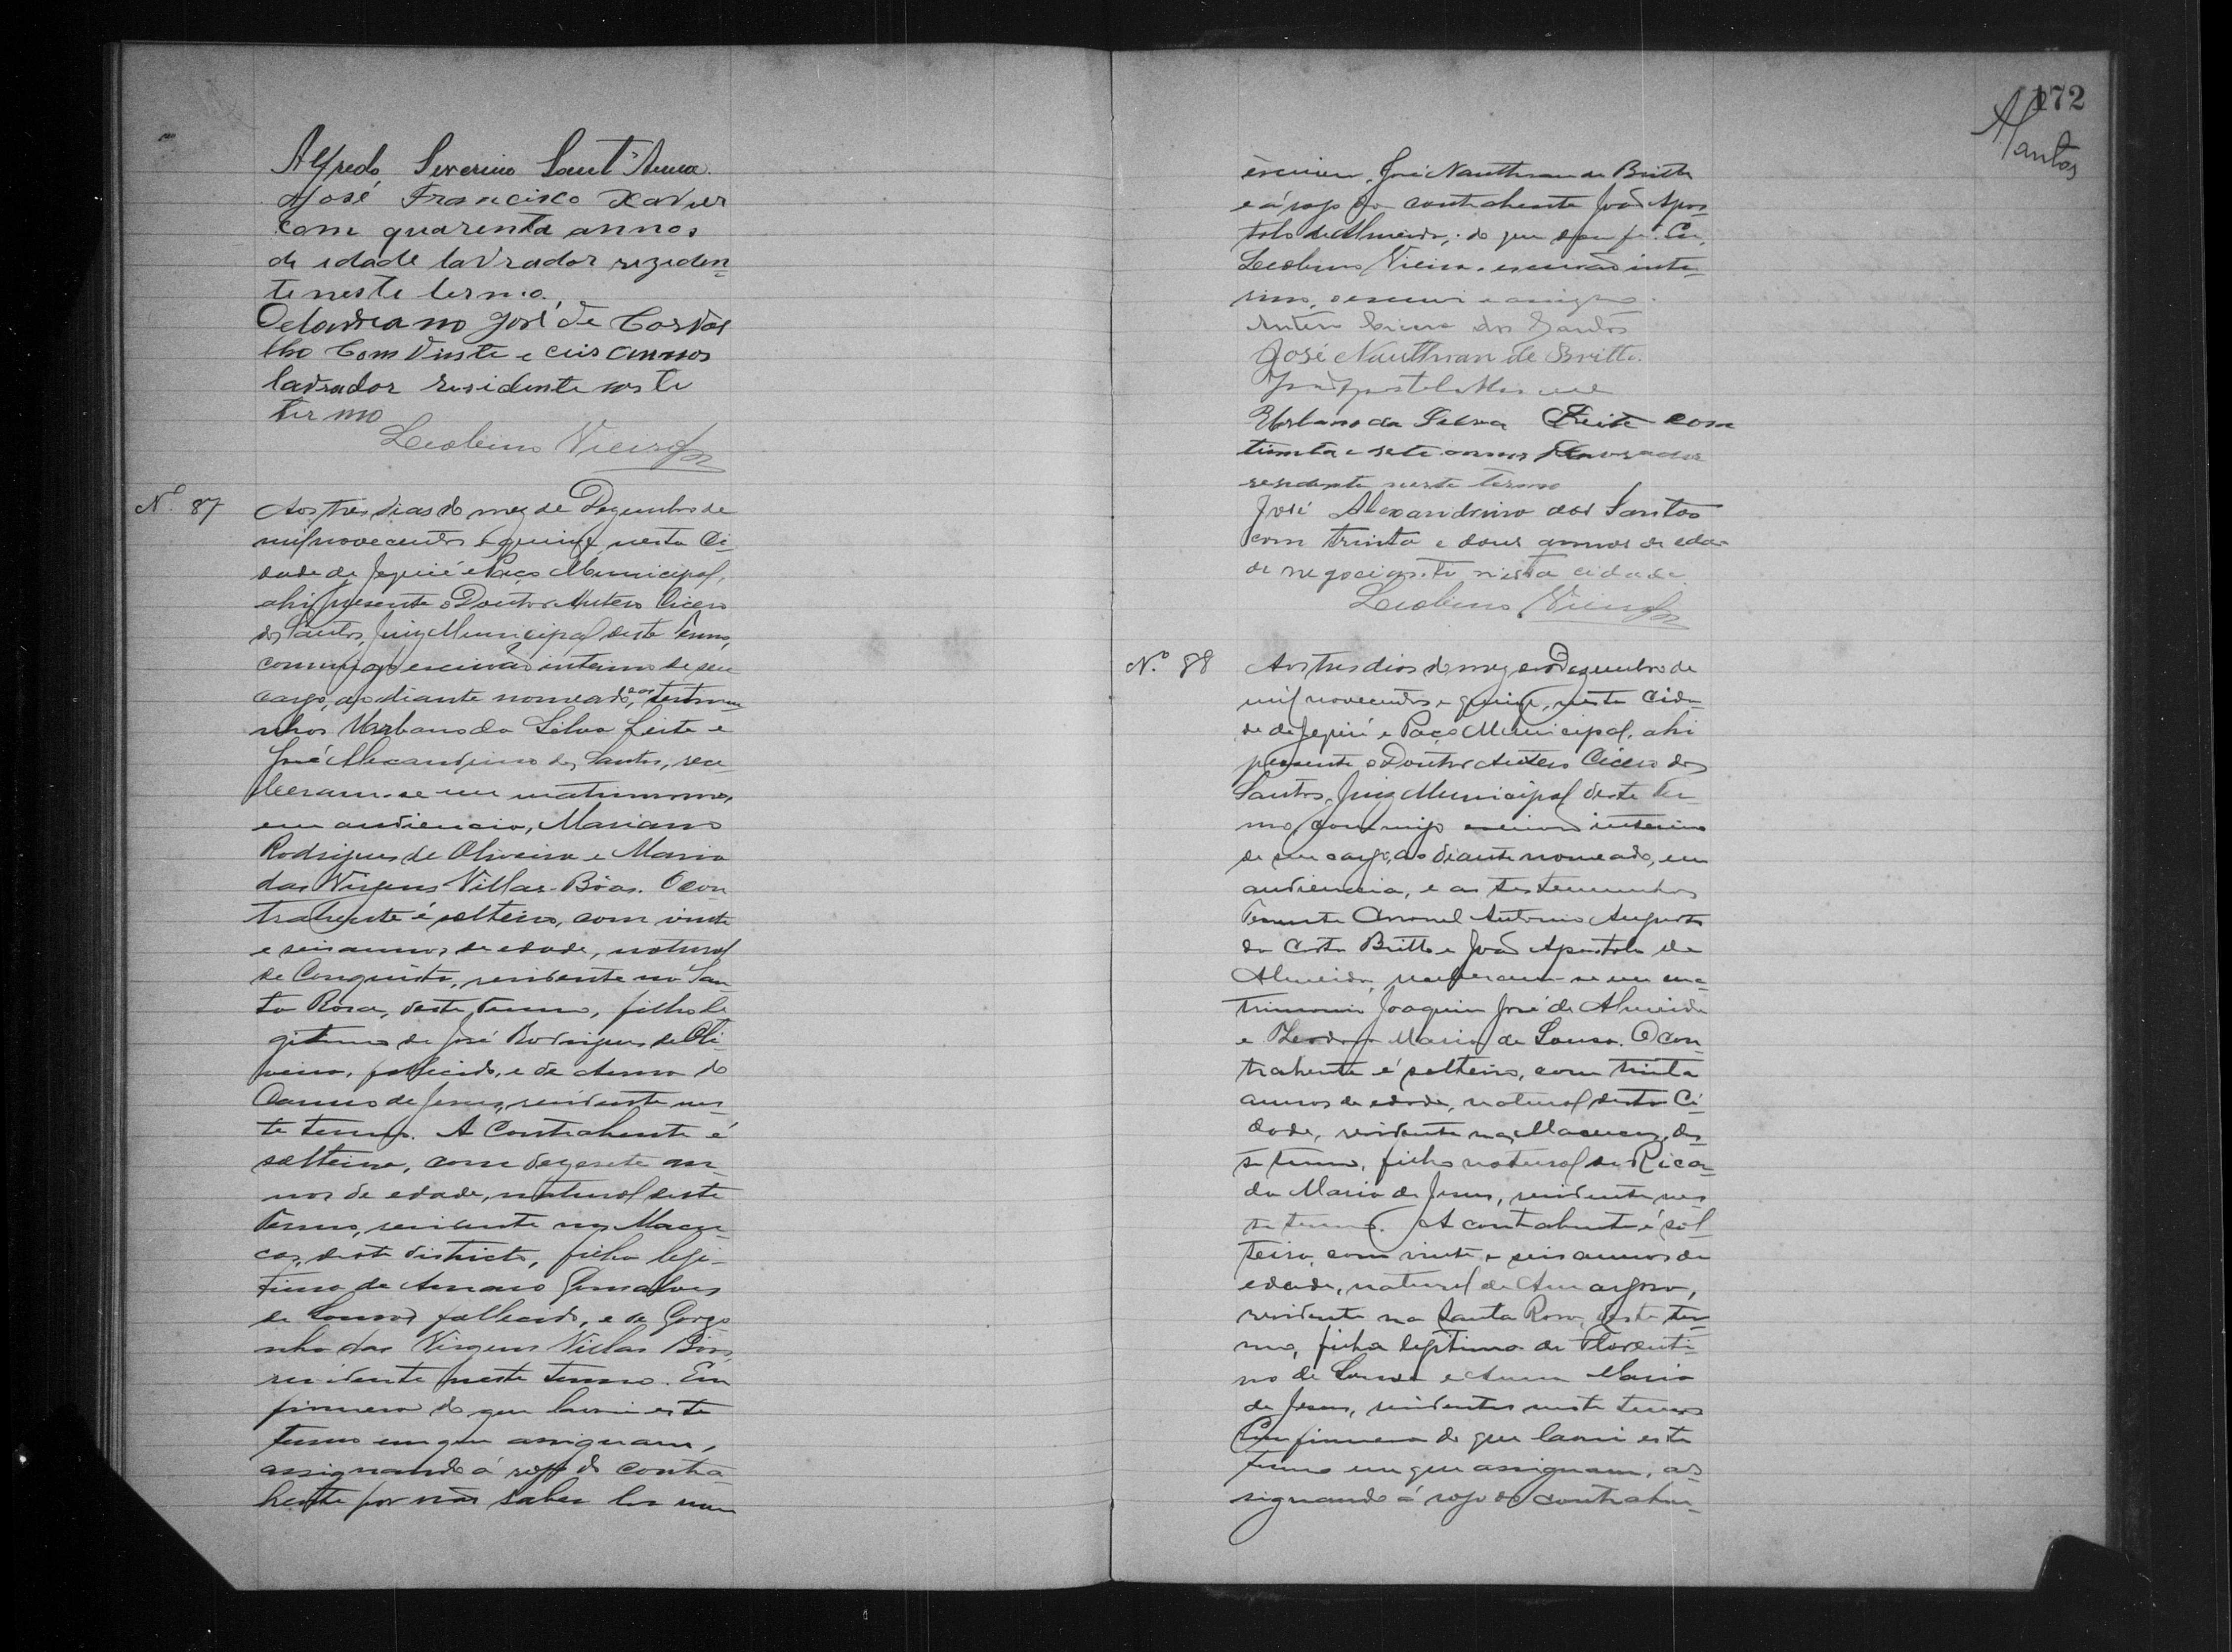 Alfredo Severino Sant'Anna.
José Francisco Xavier
com quarenta annos
de idade lavrador reziden-
te neste termo.
José de Carval
lho com vinte e ceis annos
lavrador residente neste
termo
Leolino Vieira
Nº 87
Aos tres dias do mez de Dezembro de
mil novecentos e quinze, nesta Ci-
dade de Jequié e Paço Municipal,
ahi presente o Doutor Antero Cicero
dos Santos, Juiz Municipal deste Termo,
commigo escrivão interino de seu
cargo, ao diante nomeado, e as testemu-
nhas Urbano da Silva Leite e
José Alexandrino dos Santos, rece-
beram-se em matrimonio,
em audiencia, Mariano
Rodrigues de Oliveira e Maria
das Virgens Villas-Bôas. O con-
trahente é solteiro, com vinte
e seis annos de edade, natural
de Conquista, residente na San-
ta Rosa, deste termo, filho le-
gitimo de José Rodrigues de Oli-
veira, fallecido, e de Anna do
Carmo de Jesus, residente nes-
te termo. A Contrahente é
solteira, com dezesete an-
nos de edade, natural deste
Termo, residente nos Macu-
cos, deste districto, filha legi-
tima de Amaro Gonsalves
de Sousa, fallecido, e de
das Virgens Villas Bôas,
residente neste termo. Em
firmeza do que lavrei este
termo em que assignam,
assignando á rogo do contra-
hente por não saber ler nem
172
ASantos
escrever, José Nauthman de Britto
e á rogo da contrahente João Apos-
tolo de Almeida; do que dou fé. Eu,
Leolino Vieira, escrivão inte-
rino, o escrevi e assigno.
Antero Cicero dos Santos
José Nauthman de Britto.
Urbano da Silva Leite com
trinta e sete annos lavrador
residente neste termo
José Alexandrino dos Santos
com trinta e dous annos de eda-
de negociante nesta cidade.
Leolino Vieira
Nº 88
Aos tres dias do mez de Dezembro de
mil novecentos e quinze, nesta Cida-
de de Jequié e Paço Municipal, ahi
presente o Doutor Antero Cicero dos
Santos, Juiz Municipal deste Ter-
mo, commigo escrivão interino
de seu cargo, ao diante nomeado, em
audiencia, e as testemunhas
Tenente Coronel Antonio Augusto
da Costa Britto e João Apostolo de
Almeida, receberam-se em ma-
trimonio Joaquim José de Almeida
e Maria de Sousa. O con-
trahente é solteiro, com trinta
annos de edade, natural desta Ci-
dade, residente nos Macucos, des-
te termo, filho natural de Ricar-
da Maria de Jesus, residente nes-
te termo. A contrahente é sol-
teira, com vinte e seis annos de
edade, natural de Amargosa,
residente na Santa Rosa, deste ter-
mo, filha legitima de Florenti-
no de Sousa e Anna Maria
de Jesus, residentes neste termo
Em firmeza do que lavrei este
termo em que assignam, as-
signando á rogo do contrahen-